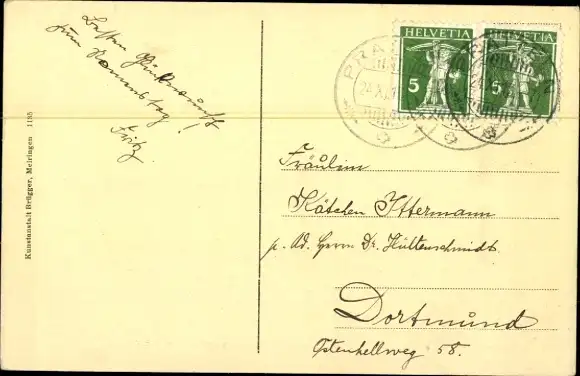 Besten Glückwunsch
zum Namenstag!
Fritz
Kunstanstalt Brügger, Meiringen 1195
HELVETIA HELVETIA
5 5
Fräulein
Kätchen Ittermann
p. Ad. Herrn Dr. Hüttenschmidt
Dortmund
Ostenhellweg 58.